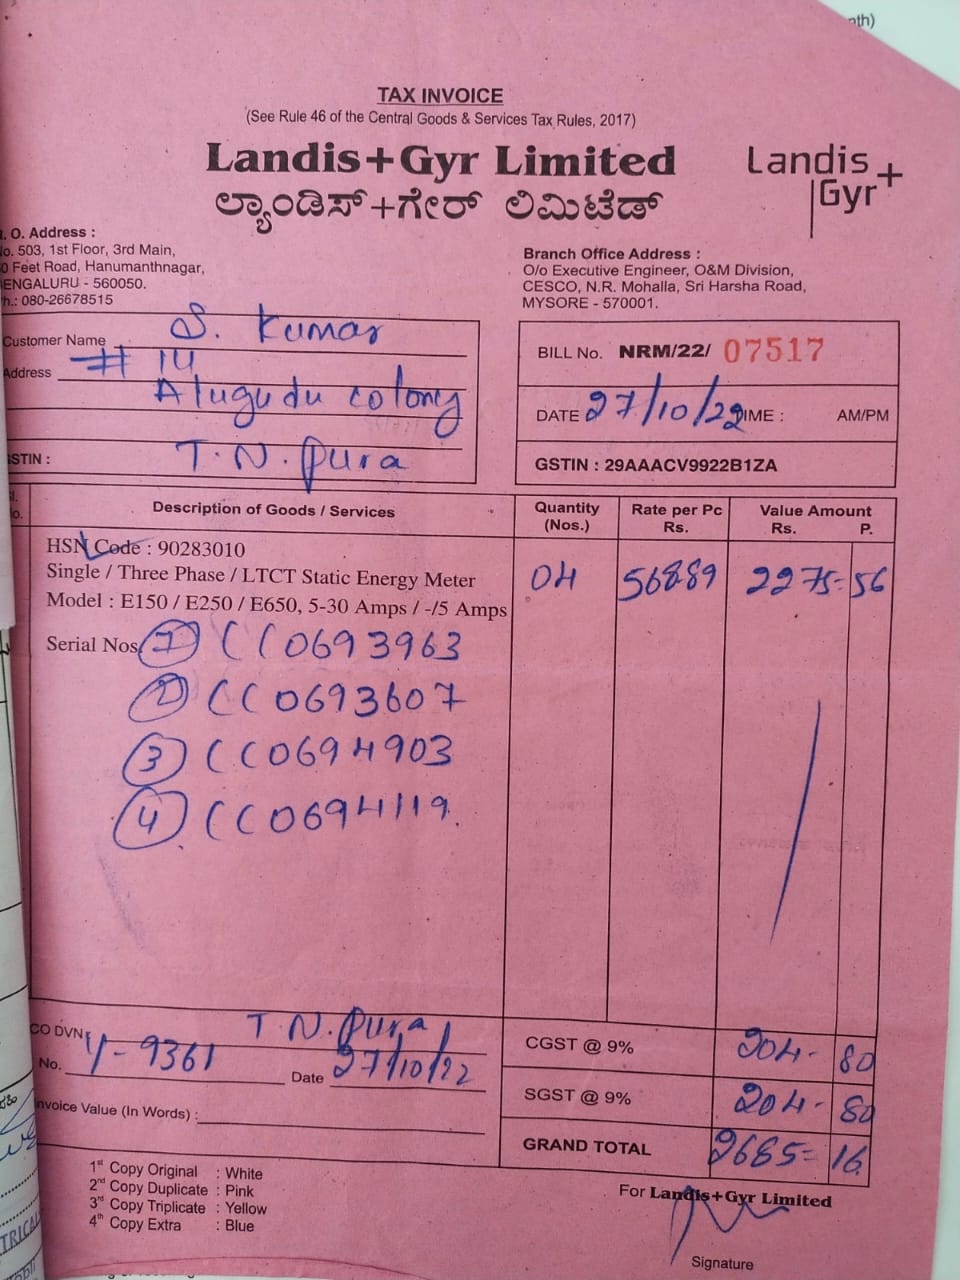 TAX INVOICE
(See Rule 46 of the Central Goods & Services Tax Rules, 2017)
Landis+Gyr Limited
ಲ್ಯಾಂಡಿಸ್+ಗೇರ್ ಲಿಮಿಟೆಡ್
Landis
Gyr+
. O. Address :
o. 503, 1st Floor, 3rd Main,
0 Feet Road, Hanumanthnagar,
ENGALURU - 560050.
h.: 080-26678515
Branch Office Address :
O/o Executive Engineer, O&M Division,
CESCO, N.R. Mohalla, Sri Harsha Road,
MYSORE - 570001.
Customer Name S. Kumar
Address # 14
Alugudu colony
T.N. Pura
GSTIN :
BILL No. NRM/22/ 07517
DATE 27/10/22 TIME : AM/PM
GSTIN : 29AAACV9922B1ZA
Description of Goods / Services
Quantity (Nos.)
Rate per Pc Rs.
Value Amount Rs. P.
HSN Code : 90283010
Single / Three Phase / LTCT Static Energy Meter
04 568.89 2275=56
Model : E150 / E250 / E650, 5-30 Amps / -/5 Amps
Serial Nos. 1 CC0693963
2 CC0693607
3 CC0694903
4 CC0694119
CO DVN T.N. Pura
No. Y-9361 Date 27/10/22
Invoice Value (In Words) :
CGST @ 9% 204- 80
SGST @ 9% 204- 80
GRAND TOTAL 2685= 16
1st Copy Original : White
2nd Copy Duplicate : Pink
3rd Copy Triplicate : Yellow
4th Copy Extra : Blue
For Landis+Gyr Limited
Signature